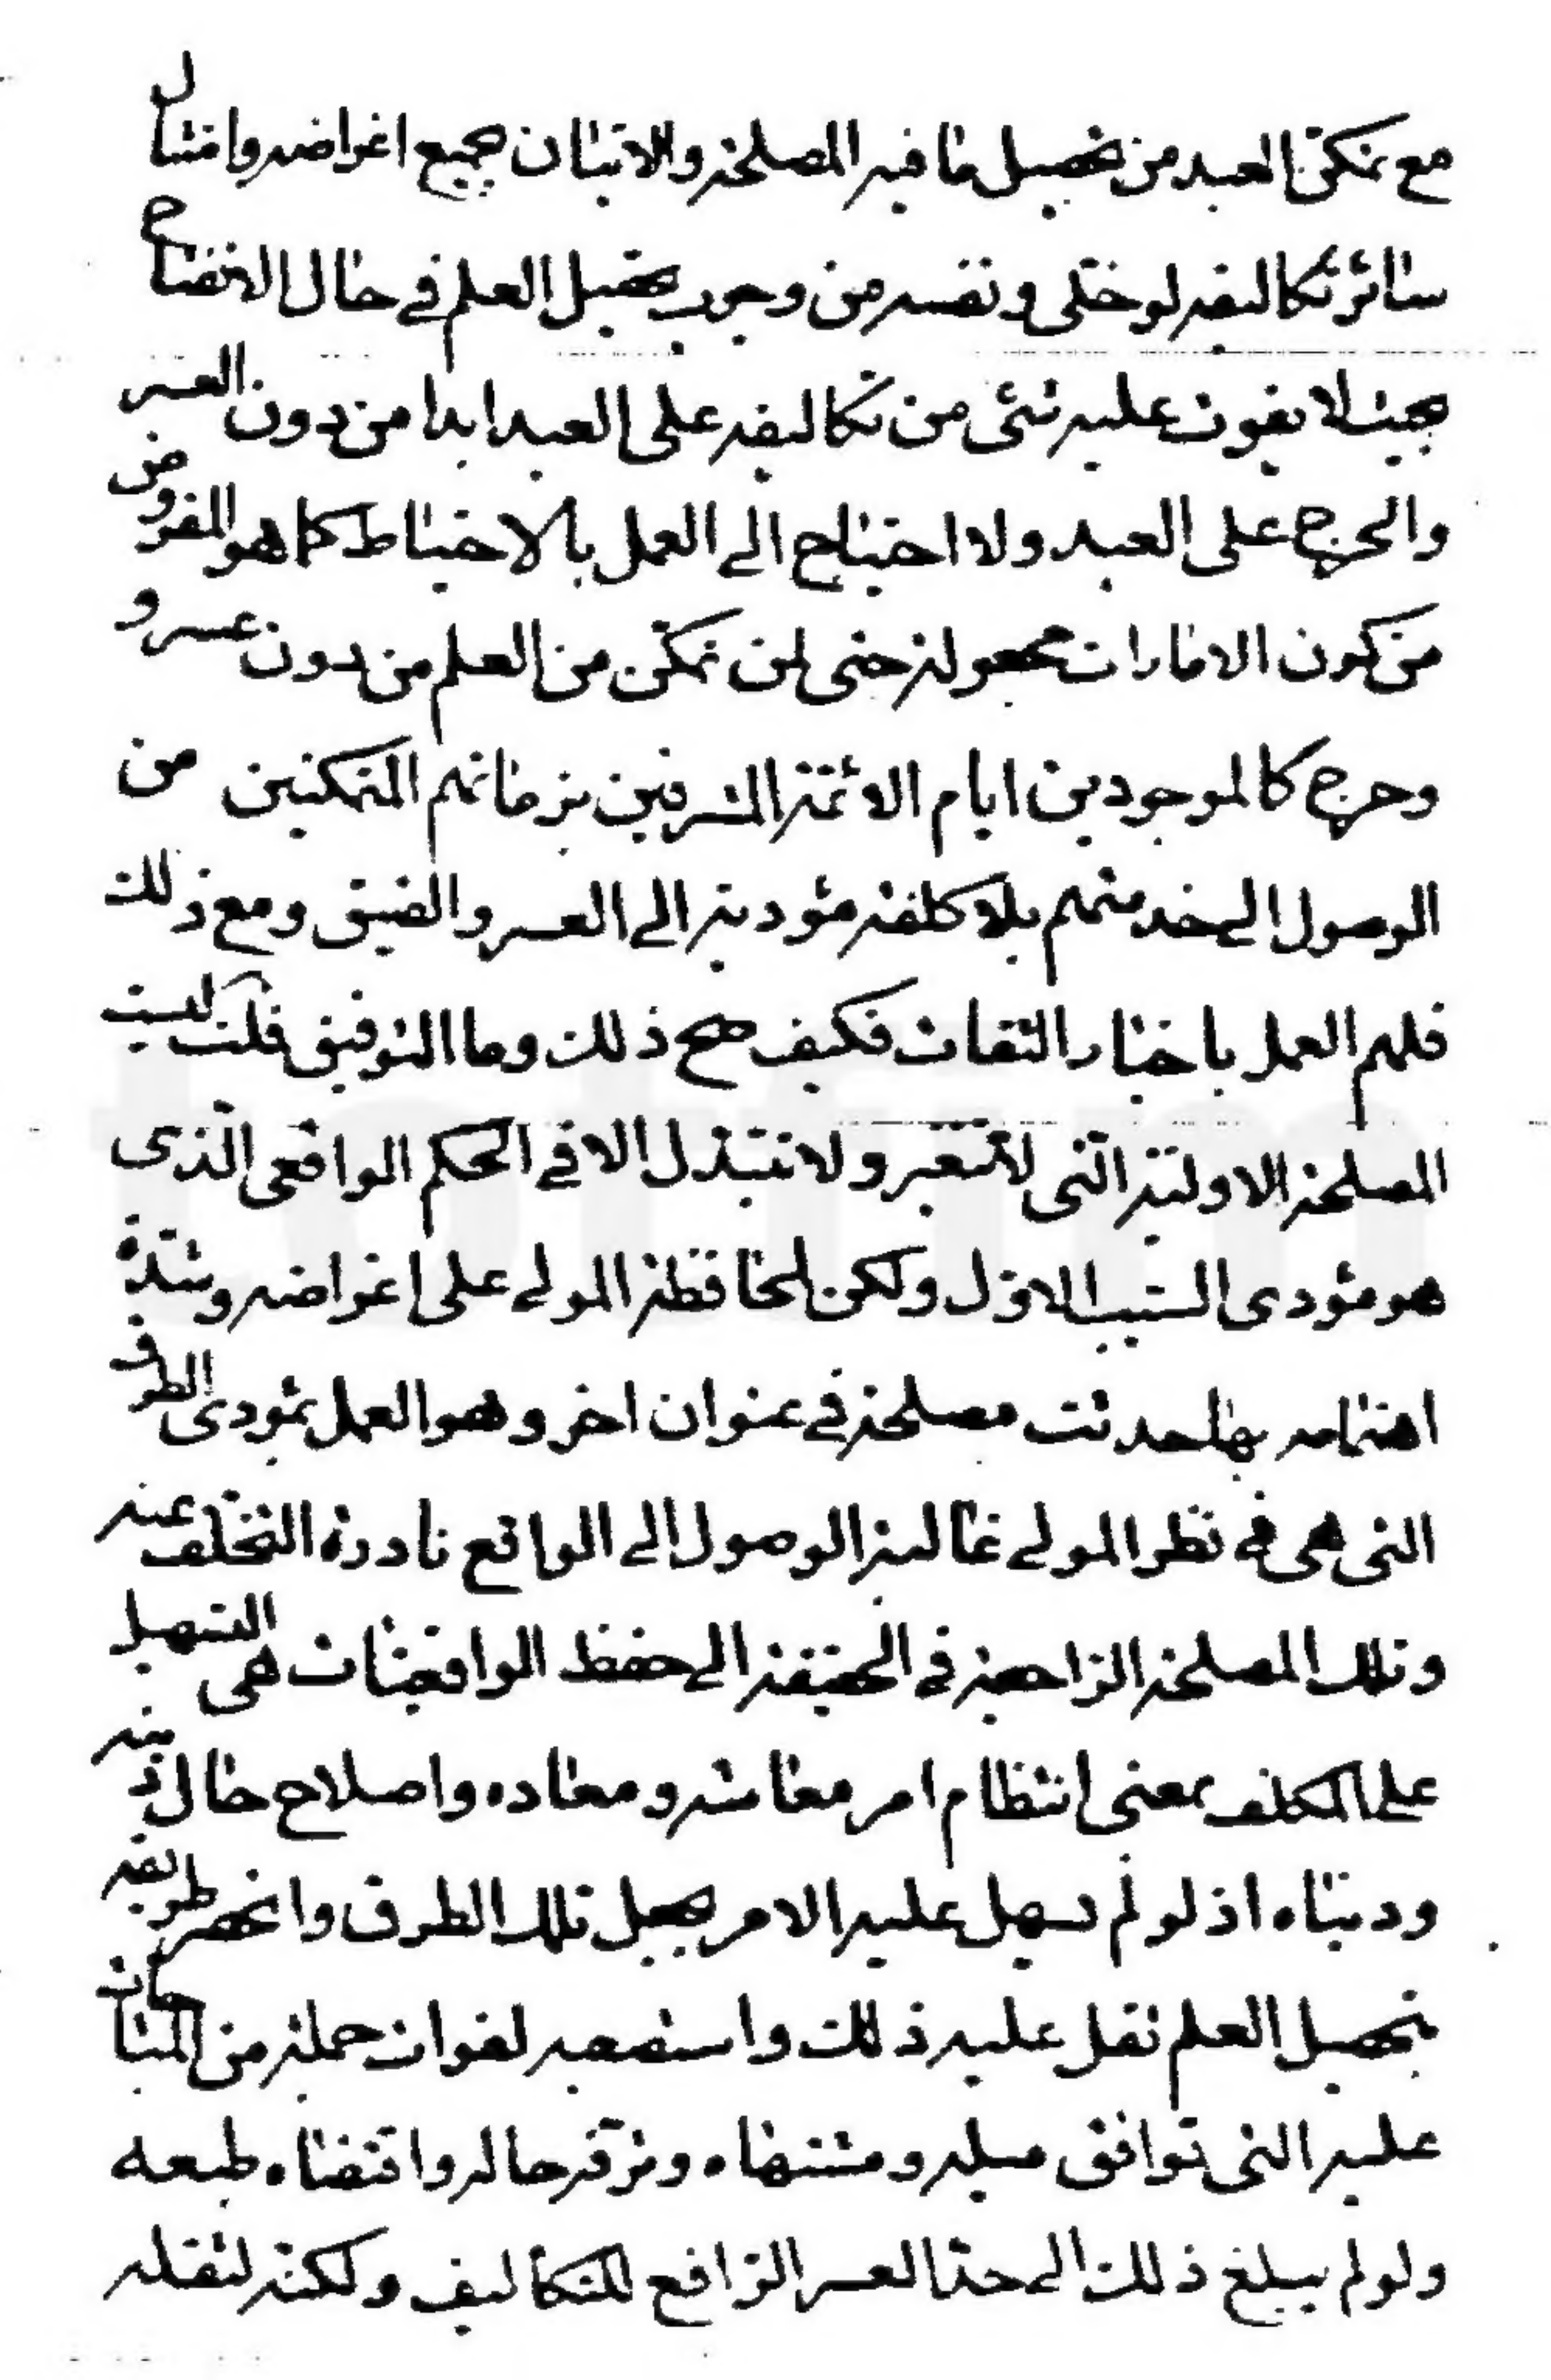 مع تمكن العبد من تحصيل ما فيه المصلحة والاتيان بجميع اغراضه وامتثال
سائر تكاليفه لو خلى ونفسه من وجوب تحصيل العلم في حال الانفتاح
بحيث لا يفوت عليه شئ من تكاليفه على العبد ابدا من دون العسر
والحرج على العبد ولا احتياج الى العمل بالاحتياط كما هو المفروض
من كون الامارات مجعولة حتى لمن تمكن من العلم من دون عسر و
وحرج كالموجودين ايام الائمة المشرفين بزمانهم المتمكنين من
الوصول الى خدمتهم بلا كلفة مؤدية الى العسر والضيق ومع ذلك
فلهم العمل باخبار الثقات فكيف صح ذلك وما التوفيق قلت ليست
المصلحة الاولية التي لا تتغير ولا تتبدل الا في الحكم الواقعى الذى
هو مؤدى السبب الاول ولكن لمحافظة المولى على اغراضه وشدة
اهتمامه بها حدثت مصلحة في عنوان اخر وهو العمل بمؤدى الطرق
التى هى في نظر المولى غالبة الوصول الى الواقع نادرة التخلف عنه
وتلك المصلحة الراجعة في الحقيقة الى حفظ الواقعيات هى التسهيل
على المكلف بمعنى انتظام امر معاشه ومعاده واصلاح حال دينه
ودنياه اذ لو لم يسهل عليه الامر بجعل تلك الطرق وانحصر طريقه
بتحصيل العلم ثقل عليه ذلك واستصعبه لفوات جملة من المباحات
عليه التى توافق ميله ومشتهاه وترقه حاله واقتضاه طبعه
ولو لم يبلغ ذلك الى حد العسر الرافع للتكاليف ولكنه لثقله